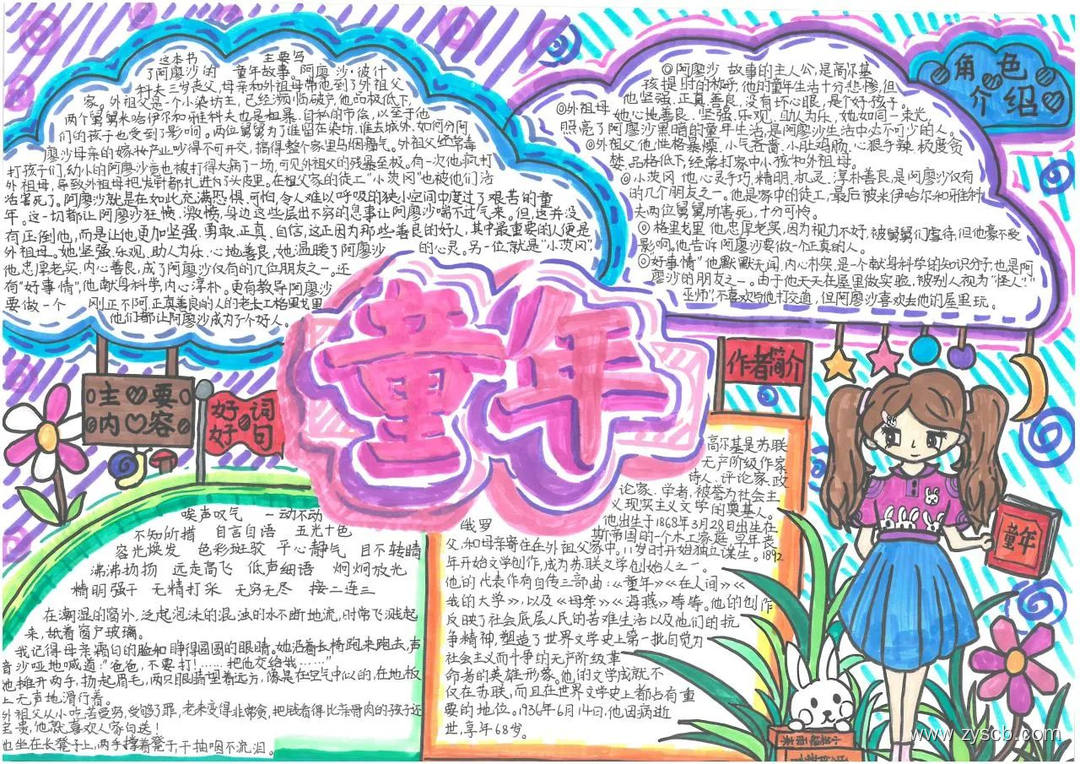 童年
主要
内容
这本书 主要写
了阿廖沙的 童年故事。阿廖沙·彼什
科夫三岁丧父,母亲和外祖母带他到了外祖父
家。外祖父是一个小染坊主,已经濒临破产,他品格低下,
两个舅舅米哈伊和雅科夫也是粗暴、自私的市侩,以至于他
们的孩子也受到了影响。两位舅舅为了谁留在染坊,谁去城外,如何分阿
廖沙母亲的嫁妆产业吵得不可开交,搞得整个家里乌烟瘴气。外祖父还常毒
打孩子们,幼小的阿廖沙曾也被打得大病了一场,可见外祖父的残暴至极。有一次他痛打
外祖母,导致外祖母把发针都扎进了头皮里。在祖父家的徒工“小茨冈”也被他们活
活害死了。阿廖沙就是在如此充满恐惧、可怕,令人难以呼吸的狭小空间中度过了艰苦的童
年。这一切都让阿廖沙狂愤、激愤,身边这些层出不穷的恶事让阿廖沙喘不过气来。但,这并没
有正倒他,而是让他更加坚强、勇敢、正真、自信,这正因为那些善良的好人,其中最重要的人便是
外祖母。她坚强、乐观,助人为乐,心地善良,她温暖了阿廖沙 的心灵。另一位就是“小茨冈”,
他忠厚老实,内心善良,成了阿廖沙仅有的几位朋友之一。还
有“好事情”,他献身科学,内心淳朴。更有教导阿廖沙
要做一个 刚正不阿,正真善良的人的老长工格里戈里
他们都让阿廖沙成为了个好人。
角色
介绍
◎阿廖沙 故事的主人公,是高尔基
孩提时的称呼,他的童年生活十分悲惨,但
他坚强、正真、善良,没有坏心眼,是个好孩子。
◎外祖母 她心地善良、坚强、乐观、助人为乐,她如同一束光,
照亮了阿廖沙黑暗的童年生活,是阿廖沙生活中必不可少的人。
◎外祖父 他性格暴燥、小气吝啬、小肚鸡肠、心狠手辣、极度贪
婪、品格低下,经常打家中小孩和外祖母。
◎小茨冈 他心灵手巧,精明、机灵、淳朴善良,是阿廖沙仅有
的几个朋友之一。他是家中的徒工,最后被米伊哈尔和雅科
夫两位舅舅所害死,十分可怜。
◎格里戈里 他忠厚老实,因为视力不好,被舅舅们虐待,但他毫不受
影响。他告诉阿廖沙要做一个正真的人。
◎“好事情” 他默默无闻,内心朴实,是一个献身科学的知识分子,也是阿
廖沙的朋友之一。由于他天天在屋里做实验,被别人视为“怪人”“
巫师”,不喜欢与他打交道,但阿廖沙喜欢去他的屋里玩。
好词
好句
唉声叹气 一动不动
不知所措 自言自语 五光十色
容光焕发 色彩斑驳 平心静气 目不转睛
沸沸扬扬 远走高飞 低声细语 炯炯放光
精明强干 无精打采 无穷无尽 接二连三
在潮湿的窗外,泛起泡沫的混浊的水不断地流,时常飞溅起
来,舐着窗户玻璃。
我记得母亲苍白的脸和睁得圆圆的眼睛。她沿着长椅跑来跑去,声
音沙哑地喊道:“爸爸,不要打!……把他交给我……”
他摊开两手,扬起眉毛,两只眼睛望着远方,像是在空气中似的,在地板
上无声地滑行着。
外祖父从小吃苦受穷,受够了罪,老来变得非常贪,把钱看得比亲骨肉的孩子还
宝贵,他就喜欢人家白送!
也坐在长凳子上,两手撑着凳子,干抽咽不流泪。
作者简介
高尔基是苏联
无产阶级作家
诗人、评论家、政
论家、学者,被誉为社会主
义现实主义文学的奠基人。
他出生于1868年3月28日出生在
俄罗 斯帝国的一个木工家庭,早年丧
父,和母亲寄住在外祖父家中。11岁时开始独立谋生。1892
年开始文学创作,成为苏联文学创始人之一。
他的代表作有自传三部曲:《童年》《在人间》《
我的大学》,以及《母亲》《海燕》等等。他的创作
反映了社会底层人民的苦难生活以及他们的抗
争精神,塑造了世界文学史上第一批自觉为
社会主义而斗争的无产阶级革
命者的英雄形象。他的文学成就不
仅在苏联,而且在世界文学史上都占有重
要的地位。1936年6月14日,他因病逝
世,享年68岁。
童年
www.zyscb.com